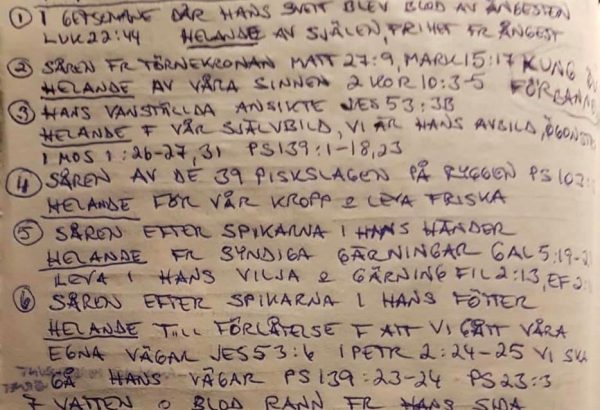 ① I GETSEMANE DÄR HANS SVETT BLEV BLOD AV ÅNGESTEN
LUK 22:44 HELANDE AV SJÄLEN, FRIHET FR ÅNGEST
② SÅREN FR TÖRNEKRONAN MATT 27:9, MARK 15:17 KUNG
HELANDE AV VÅRA SINNEN 2 KOR 10:3-5 FÖRBANN
③ HANS VANSTÄLLDA ANSIKTE JES 53:3B
HELANDE F VÅR SJÄLVBILD, VI ÄR HANS AVBILD, ÖGONST
1 MOS 1:26-27, 31 PS 139:1-18, 23
④ SÅREN AV DE 39 PISKSLAGEN PÅ RYGGEN PS 103:
HELANDE FÖR VÅR KROPP & LEVA FRISKA
⑤ SÅREN EFTER SPIKARNA I HANS HÄNDER
HELANDE FR SYNDIGA GÄRNINGAR GAL 5:19-2
LEVA I HANS VILJA & GÄRNING FIL 2:13, EF 2:
⑥ SÅREN EFTER SPIKARNA I HANS FÖTTER
HELANDE TILL FÖRLÅTELSE F ATT VI GÅTT VÅRA
EGNA VÄGAR JES 53:6 1 PETR 2:24-25 VI SKA
GÅ HANS VÄGAR PS 139:23-24 PS 23:3
7 VATTEN O BLOD RANN FR HANS SIDA